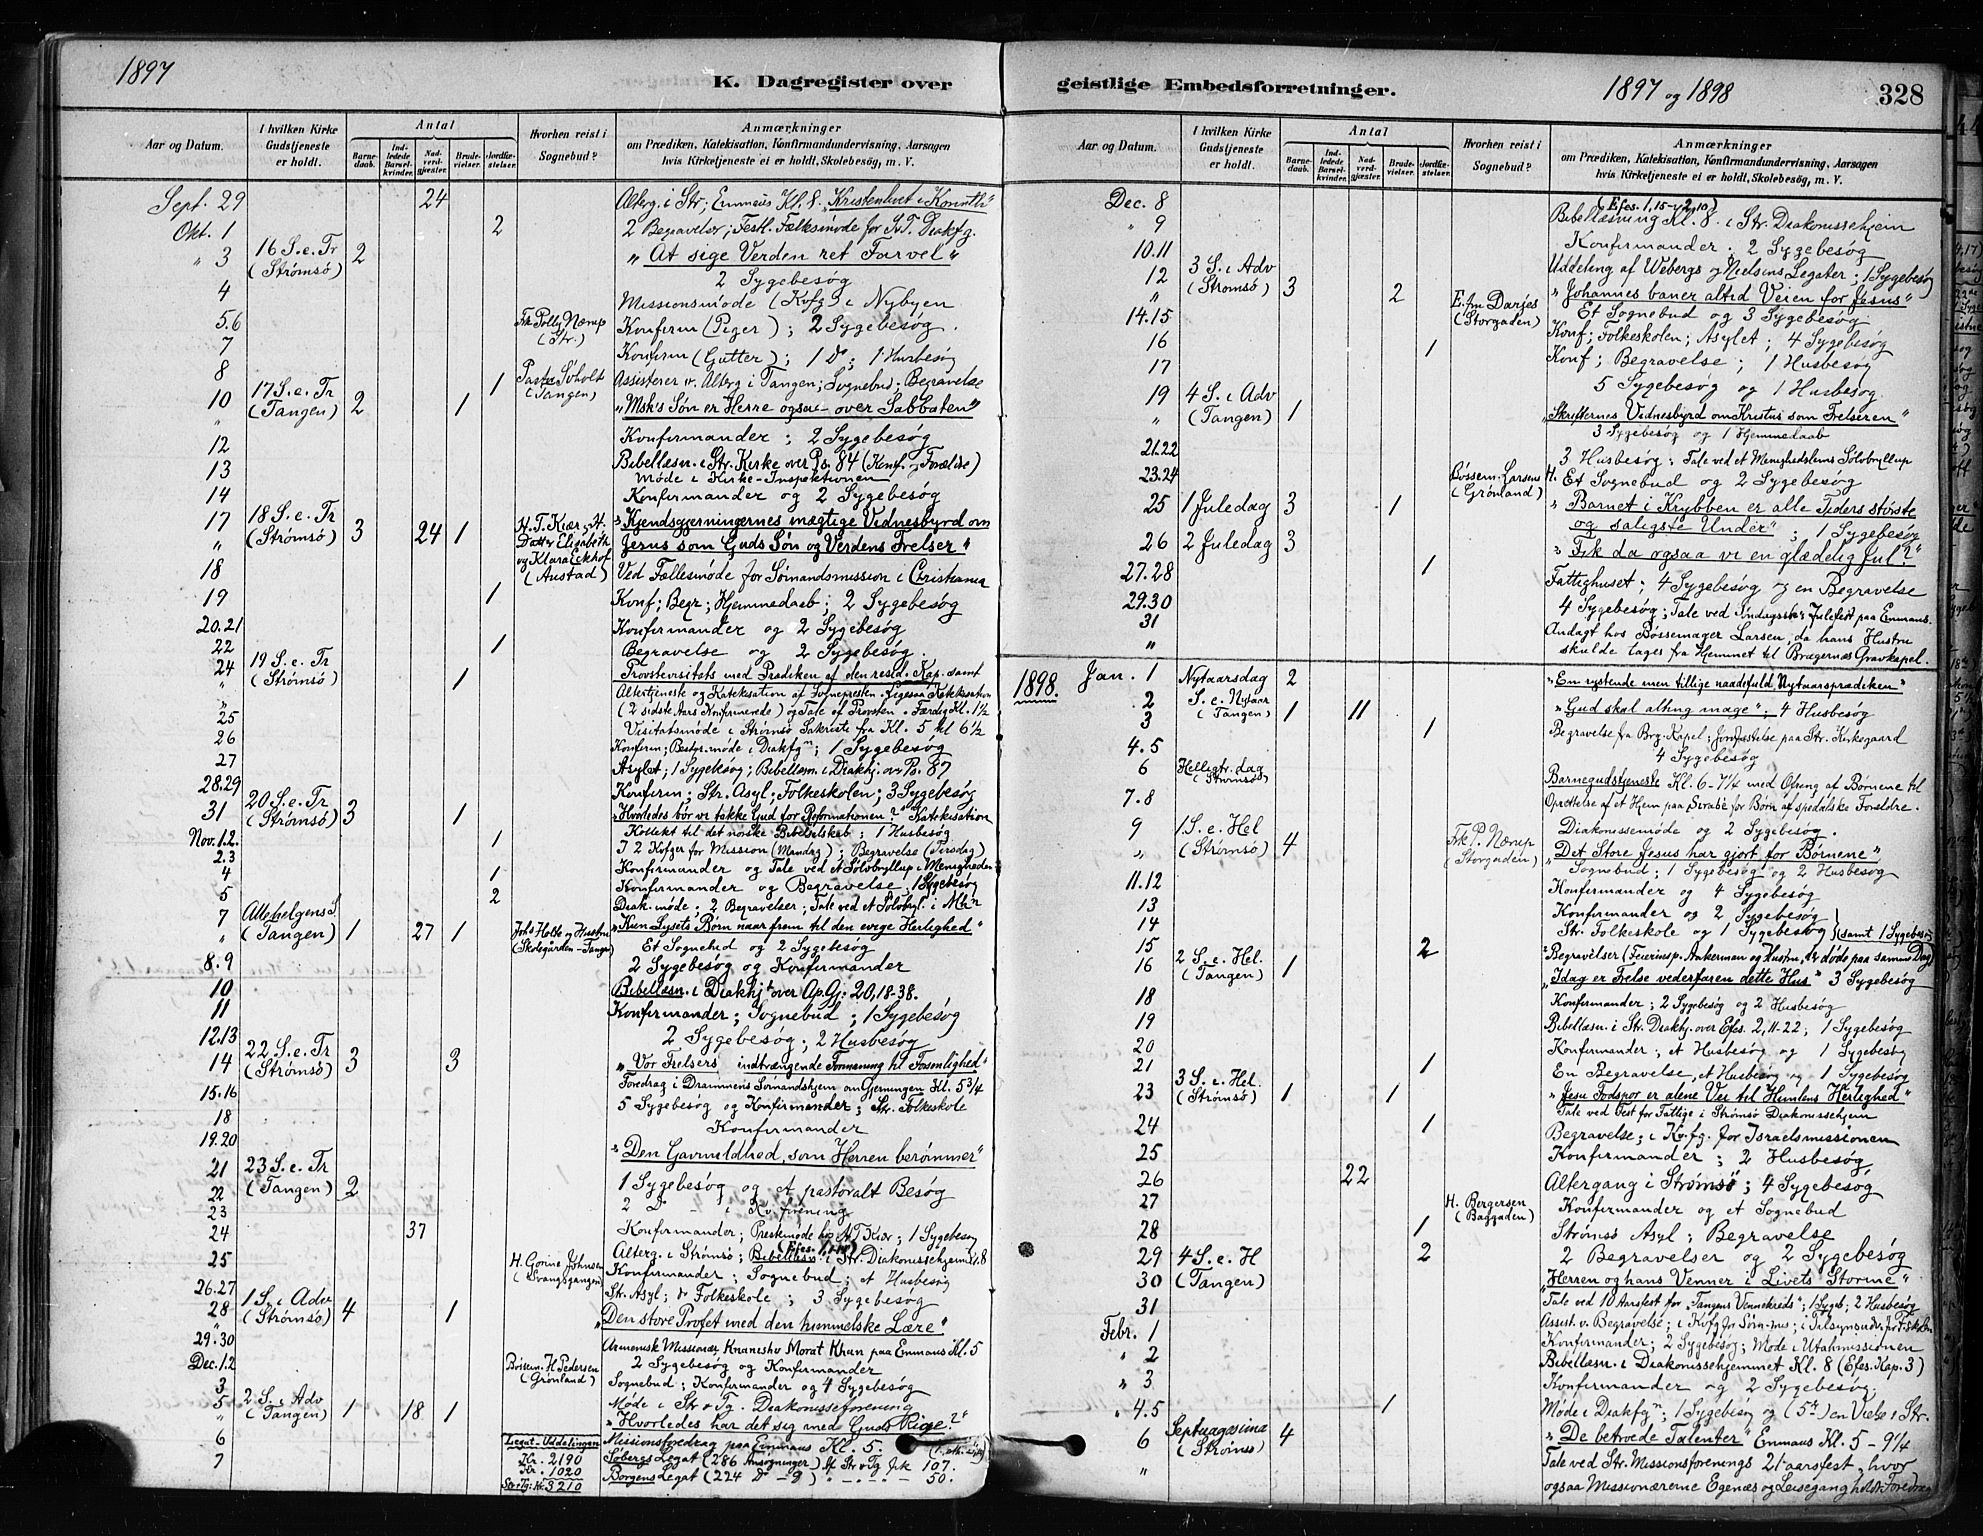 1897
K. Dagregister over
Aar og Datum.
I hvilken Kirke Gudstjeneste er holdt.
Antal
Barnedaab.
Indledede Barselkvinder.
Nadverdgjæster.
Brudevielser.
Jordfæstelser.
Hvorhen reist i Sognebud?
Anmærkninger
om Prædiken, Katekisation, Konfirmandundervisning, Aarsagen
hvis Kirketjeneste ei er holdt, Skolebesøg, m. V.
Sept. 29 24 Alterg. i Str; Emmaus Kl. 8. "Kristenlivet i Korinth"
Okt. 1 2 2 Begravelser; Festl. Fællesmøde for Diakfg.
" 3 16 S. e. Tr (Strømsø) 2 "At sige Verden ret Farvel"
2 Sygebesøg
4 Missionsmøde (Kvfg) i Nybyen
5.6 Frk Polly Nærup (Str.) Konfirm (Piger); 2 Sygebesøg.
7 Konfirm (Gutter); 1 Do; 1 Husbesøg
8 1 (Tangen) Assisterer v. Alterg i Tangen; Sognebud; Begravelse
10 17 S. e. Tr (Tangen) 2 1 "Msk's Søn er Herre ogsaa over Sabbaten"
12 Konfirmander; 2 Sygebesøg
13 Bibellæsn. i Str. Kirke over Ps. 84 (Konf. Forældre)
Møde i Kirke-Inspektionen
14 Konfirmander og 2 Sygebesøg
17 18 S. e. Tr (Strømsø) 3 24 1 H. T. Kiær, Datter Elisabeth og Klara Eckhof (Austad) "Kjendsgjerningernes mægtige Vidnesbyrd om
" Jesus som Guds Søn og Verdens Frelser"
18 Ved Fællesmøde for Sømandsmission i Christiania
19 1 Konf; Begr; Hjemmedaab; 2 Sygebesøg
20.21 Konfirmander og 2 Sygebesøg
22 1 Begravelse og 2 Sygebesøg.
24 19 S. e. Tr (Strømsø) 1 Provstevisitats med Prædiken af den resid. Kap. samt
" Altertjeneste og Kateksation af Sognepresten. Ligesaa Katekisation
" (2 sidste Aars Konfirmerede) og Tale af Provsten. Færdig Kl. 1½
25 Visitatsmøde i Strømsø Sakristi fra Kl. 5 til 6½
26 Konfirm; Bestyr. møde i Diakfgn; 1 Sygebesøg
27 Asylet; 1 Sygebesøg; Bibellæsn. i Diakhj. over Ps. 87
28.29 Konfirm; Str. Asyl; Folkeskolen; 3 Sygebesøg
31 20 S. e. Tr (Strømsø) 3 1 "Hvorledes bør vi takke Gud for Reformationen?" Katekisation
Kollekt til det norske Bibelselskab; 1 Husbesøg
Nov. 1.2. 1 I 2 Kvfger for Mission (Mandag); Begravelse (Tirsdag)
2.3 Konfirmander og Tale ved et Sølvbryllup i Menigheden
4 1 Konfirmander og Begravelse, 1 Sygebesøg
5 2 Diak. møde; 2 Begravelser; Tale ved et Sølvbryl. i Mhn
7 Allehelgens S. (Tangen) 1 27 1 Johs Holte og Hustru (Skolegården - Tangen) "Kun Lysets Børn naar frem til den evige Herlighed"
" Et Sognebud og 2 Sygebesøg
8.9 2 Sygebesøg og Konfirmander
10 Bibellæsn. i Diakhjt over Ap.G: 20,18-38.
11 Konfirmander; Sognebud; 1 Sygebesøg
12.13 2 Sygebesøg; 2 Husbesøg
14 22 S. e. Tr (Strømsø) 3 3 "Vor Frelsers indtrængende Formaning til Forsonlighed"
Foredrag i Drammens Sømandshjem om Gjerningen Kl. 5¾
15.16 5 Sygebesøg og Konfirmander; Str. Folkeskole
18 Konfirmander
19.20
21 23 S. e. Tr (Tangen) 2 "Den Gavmildhed, som Herren berømmer"
22 1 Sygebesøg og et pastoralt Besøg
23 2 Do - i Kv. forening
24 37 Konfirmander; Prestemøde hos H. T. Kiær; 1 Sygebesøg
25 Alterg. i Strømsø; Bibellæsn. i Str. Diakonissehjem Kl. 8
26.27 H. Gorine Johnsen (Svangsgangen) Konfirmander; Sognebud; et Husbesøg
Str. Asyl; Folkeskole; 3 Sygebesøg
28 1 S. i Adv (Strømsø) 4 1 "Den store Profet med den himmelske Lære"
29.30 Armenisk Missionær Knanesho Morat Khan paa Emmaus Kl. 5
Dec. 1.2 2 Sygebesøg og Konfirmander
3 Bøssem. H. Pedersen (Grønland) Sognebud; Konfirmander og 4 Sygebesøg
5 2 S. i Adv (Tangen) 1 18 1 Møde i Str. Tg. Diakonisseforening
" "Hvorledes har det sig med Guds Rige?"
6 Legat-Uddelingen Missionsforedrag paa Emmaus Kl. 5.
7 Kr. 2190 Søbergs Legat (286 Ansøgninger) Str Tg frk 107.
Kr. 1020 Borgens Legat (224 Do - 9) " - " - 50.
Str. Tg: Kr. 3210
geistlige Embedsforretninger.
1897 og 1898
328
Aar og Datum.
I hvilken Kirke Gudstjeneste er holdt.
Antal
Barnedaab.
Indledede Barselkvinder.
Nadverdgjæster.
Brudevielser.
Jordfæstelser.
Hvorhen reist i Sognebud?
Anmærkninger
om Prædiken, Katekisation, Konfirmandundervisning, Aarsagen
hvis Kirketjeneste ei er holdt, Skolebesøg, m. V.
(Efes. 1,15-2,10)
Dec. 8 Bibellæsning Kl. 8. i Str. Diakonissehjem
" 9 Konfirmander. 2 Sygebesøg
10.11 Uddeling af Webergs og Nielsens Legater; 1 Sygebesøg
12 3 S. i Adv (Strømsø) 3 2 "Johannes baner altid Veien for Jesus"
14.15 E. fm Darjes (Storgaden) Et Sognebud og 3 Sygebesøg.
16 1 Konf; Folkeskolen; Asylet; 4 Sygebesøg
17 Konf; Begravelse; 1 Husbesøg
5 Sygebesøg og 1 Husbesøg
19 4 S. i Adv (Tangen) 1 "Skrifternes Vidnesbyrd om Kristus som Frelseren"
" 3 Sygebesøg og 1 Hjemmedaab
21.22 3 Husbesøg; Tale ved et Menighedslems Sølvbryllup
23.24 Bøssem. Larsens H. (Grønland) Et Sognebud og 2 Sygebesøg
25 1 Juledag 3 1 "Barnet i Krybben er alle Tiders største
og saligste Under"; 1 Sygebesøg
26 2 Juledag 3 "Fik da ogsaa vi en glædelig Jul?"
27.28 1 Fattighuset; 4 Sygebesøg og en Begravelse
29.30 4 Sygebesøg; Tale ved Søndagssks Julefest paa Emmaus.
31 Andagt hos Bøssemager Larsen, da hans Hustru
" skulde tages fra Hjemmet til Bragernes Gravkapel.
1898. Jan. 1 Nytaarsdag 2 "En rystende men tillige naadefuld Nytaarsprædiken"
2 S. e. Nytaar (Tangen) 1 11 "Gud skal alting mage"; 4 Husbesøg
3 1 Begravelse fra Brg. Kapel; Jordfæstelse paa Str. Kirkegaard
4.5 4 Sygebesøg
6 Helligtr. dag (Strømsø) Barnegudstjeneste Kl. 6-7¼ med Ofring af Børnene til
7.8 Oprettelse af et Hjem paa Serabe for Børn af spedalske Forældre.
Diakonissemøde og 2 Sygebesøg.
9 1 S. e. Hel (Strømsø) 4 Frk P. Nærup (Storgaden) "Det Store Jesus har gjort for Børnene"
" Sognebud; 1 Sygebesøg og 2 Husbesøg
11.12 Konfirmander og 4 Sygebesøg
13 Konfirmander og 2 Sygebesøg
14 Str. Folkeskole og 1 Sygebesøg (samt 1 Sygebesøg
15 2 2 Begravelser (Feierinsp. Ankerman og Hustru, der døde paa samme Dag)
16 2 S. e. Hel. (Tangen) 1 "Idag er Frelse vederfaren dette Hus" 3 Sygebesøg
18 Konfirmander; 2 Sygebesøg og 2 Husbesøg
19 Bibellæsn. i Str. Diakhj. over Efes. 2,11-22; 1 Sygebesøg
20 Konfirmander; et Husbesøg og 1 Sygebesøg
21 1 En Begravelse, et Husbesøg og 1 Sygebesøg
23 3 S. e. Hel. (Strømsø) 1 1 "Jesu Fodspor er alene Vei til Himlens Herlighed"
Tale ved Fest for Fattige i Strømsø Diakonissehjem
24 1 Begravelse; i Kvfg. for Israelsmissionen
25 Konfirmander; 2 Husbesøg
26 22 Altergang i Strømsø; 4 Sygebesøg
27 H. Bergersen (Baggaden) Konfirmander og et Sognebud
28 1 Strømsø Asyl; Begravelse
29 4 S. e. H 2 2 Begravelser og 2 Sygebesøg
30 (Tangen) "Herren og hans Venner i Livets Storme"
31 Tale ved 10 Aarsfest for "Tangens Vennekreds"; 1 Sygeb; 2 Husbesøg
Febr. 1 Assist. v. Begravelse; i Kvfg for Søm-mis; i Tilsynsudv. for F. skolen
" 2 Konfirmander; 2 Sygebesøg; Møde i Utahmissionen
Bibellæsn. i Diakonissehjemmet Kl. 8 (Efes. Kap. 3)
" 3 Konfirmander og 2 Sygebesøg.
" 4.5 1 Møde i Diakfgn; 1 Sygebesøg og (5te) en Vielse i Str.
6 Septuagesima (Strømsø) 4 "De betroede Talenter" Emmaus Kl. 5 - 9¼
" Tale ved Str. Missionsforenings 21 aarsfest, hvor
ogsaa Missionærerne Egenæs og Leisegang holdt Foredrag